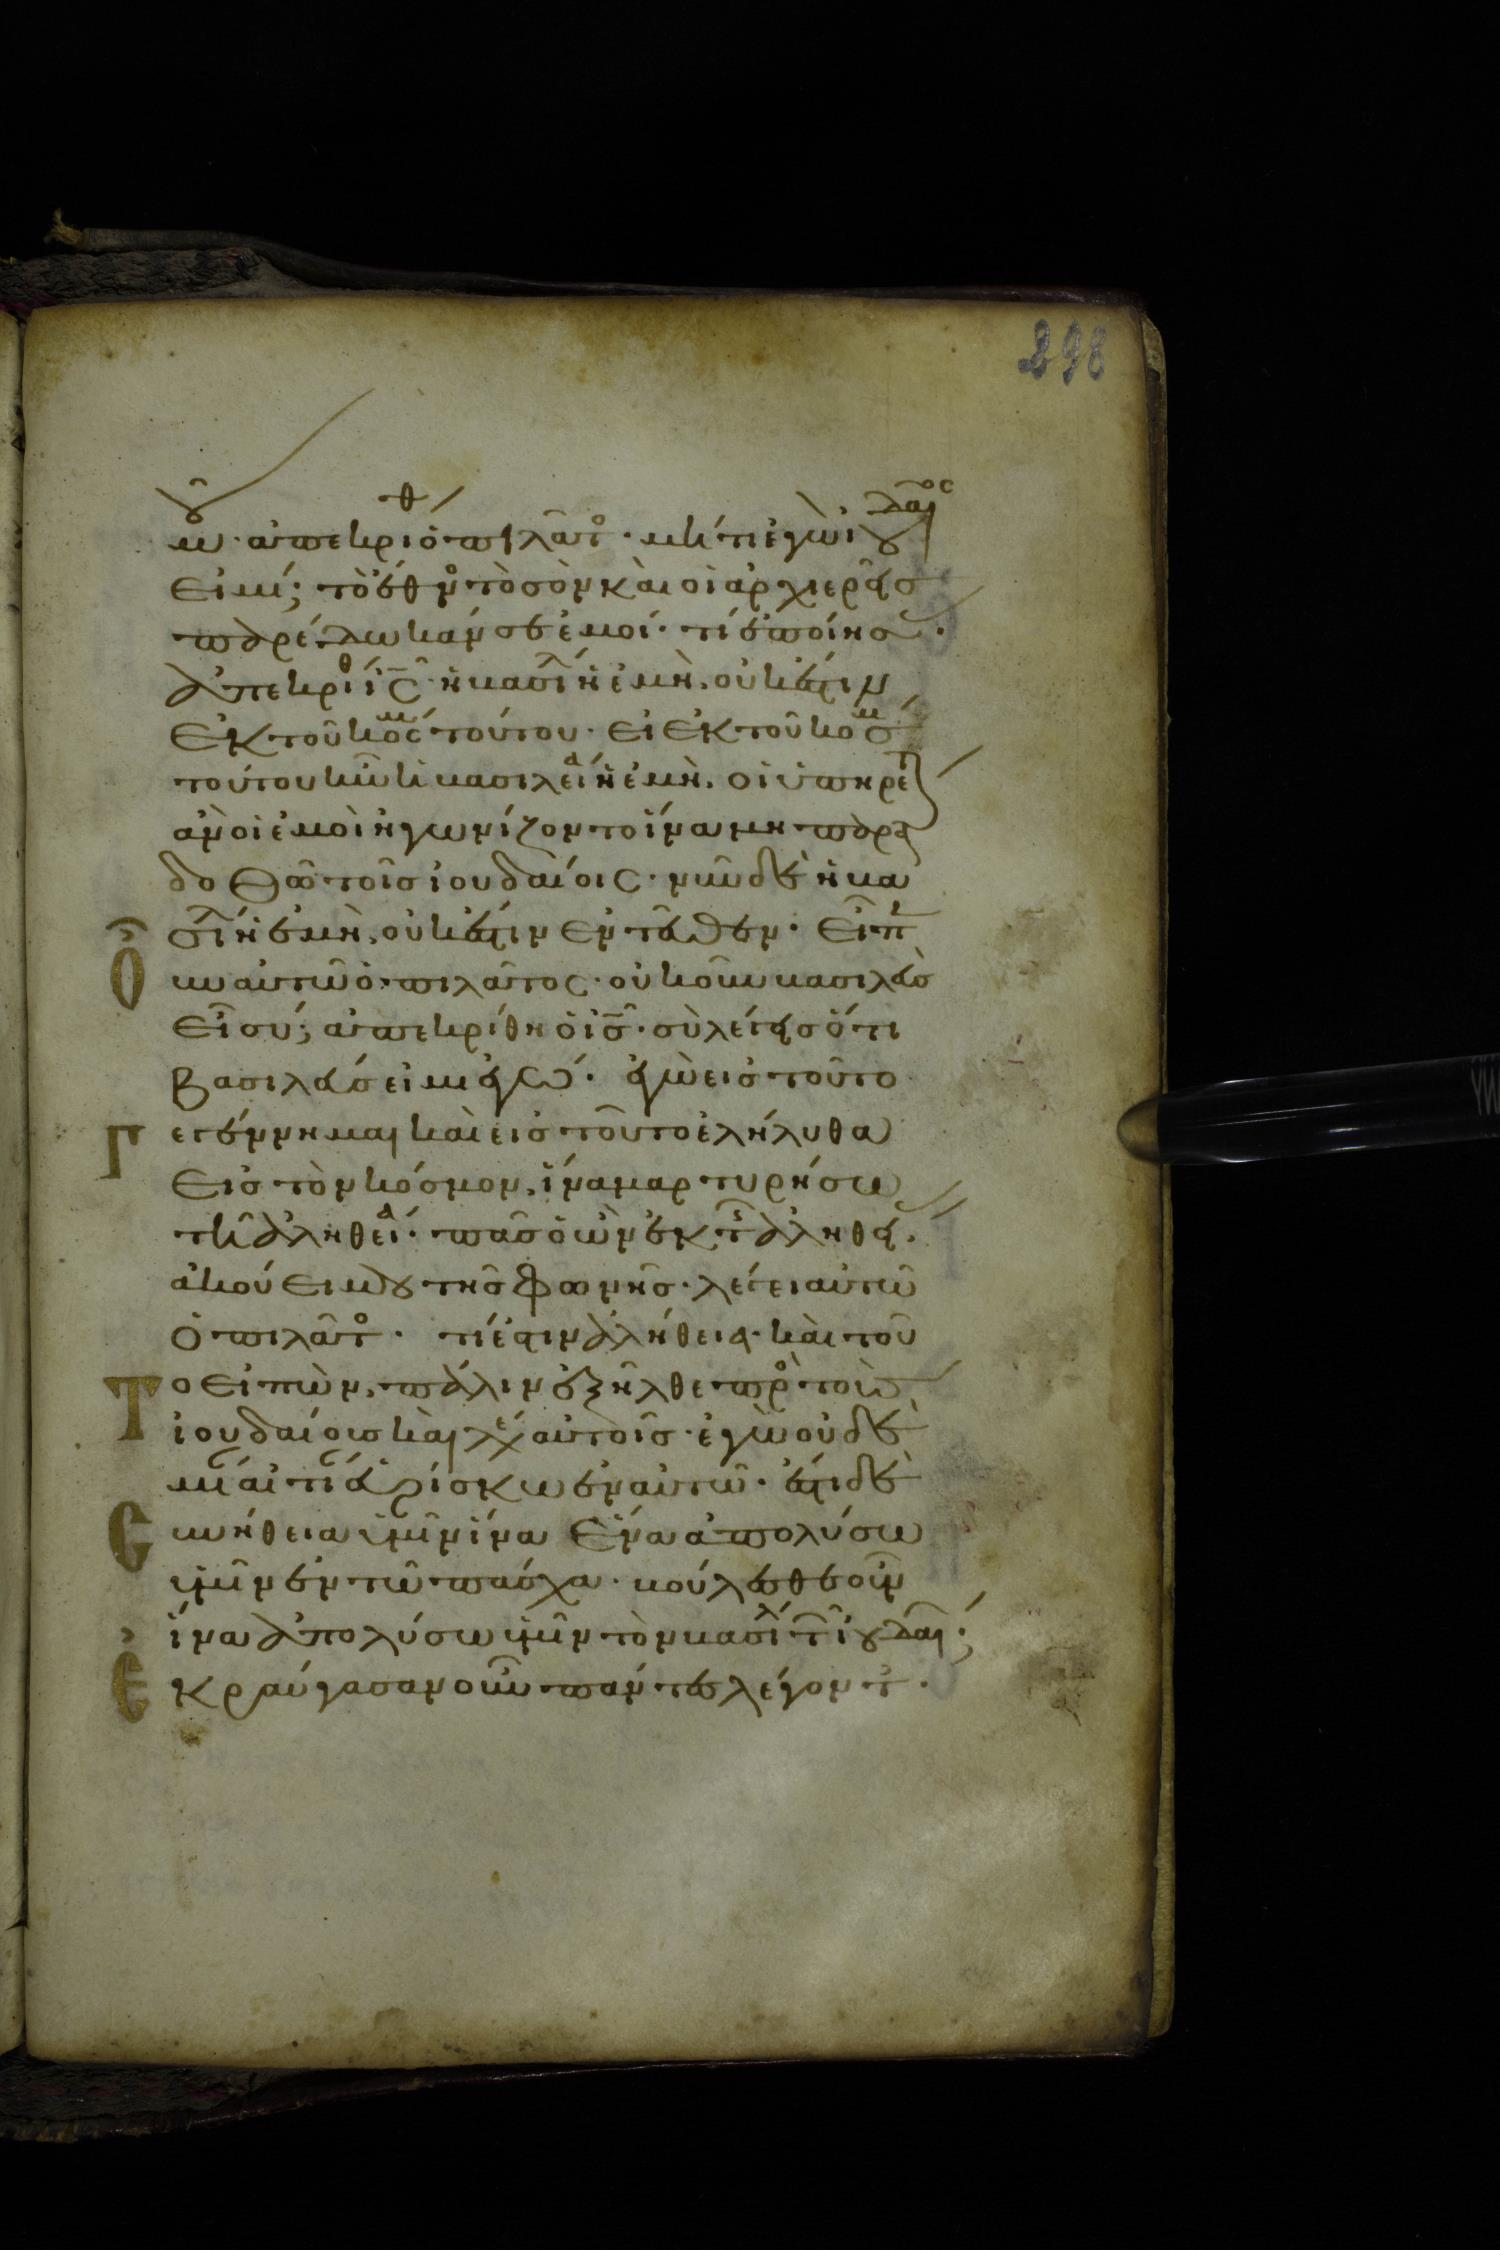 298
μου· ἀπεκριθ ὁ πιλᾶτο· μήτι ἐγὼ ἰουδαῖος
εἰμί; τὸ ἔθνο τὸ σὸν καὶ οἱ ἀρχιερεῖς
παρέδωκάν σε ἐμοί· τί ἐποίησας·
ἀπεκρίθ ις· ἡ βασιλ ἡ ἐμὴ, οὐκ ἔστιν
ἐκ τοῦ κοσμ τούτου· εἰ ἐκ τοῦ κοσμ
τούτου ἦν ἡ βασιλεία ἡ ἐμὴ, οἱ ὑπηρέτ
ἂν οἱ ἐμοὶ ἠγωνίζοντο ἵνα μὴ παρα
δοθῶ τοῖς ἰουδαίοις· νῦν δὲ ἡ βα
σιλ ἡ ἐμὴ, οὐκ ἔστιν ἐντεῦθεν· εἶπεν
Ὀ
υν αὐτῶ ὁ πιλᾶτος· οὐκοῦν βασιλεὺς
εἶ σύ; ἀπεκρίθη ὁ ις· σὺ λέγεις ὅτι
βασιλεύς εἰμι ἐγώ· ἐγὼ εἰς τοῦτο
Γ
εγέννημαι καὶ εἰς τοῦτο ἐλήλυθα
εἰς τὸν κόσμον, ἵνα μαρτυρήσω
τῆ ἀληθεία· πᾶς ὁ ὢν ἐκ τῆς ἀληθείας
ἀκούει μου τῆς φωνῆς· λέγει αὐτῶ
ὁ πιλᾶτο· τί ἐστιν ἀλήθεια· καὶ τοῦ
Τ
ο εἰπὼν, πάλιν ἐξῆλθε προ τοὺς
ἰουδαίους καὶ λέγ αὐτοῖς· ἐγὼ οὐδε
μίαν αἰτίαν εὑρίσκω ἐν αὐτῶ· ἔστι δὲ
Ε
υνήθεια ὑμῖν ἵνα ἕνα ἀπολύσω
ὑμῖν ἐν τῶ πάσχα· βούλεσθε οὖν
ἵνα ἀπολύσω ὑμῖν τὸν βασιλ τῶν ἰουδαι;
Ἐ
κραύγασαν οὖν πάντες λέγοντ·